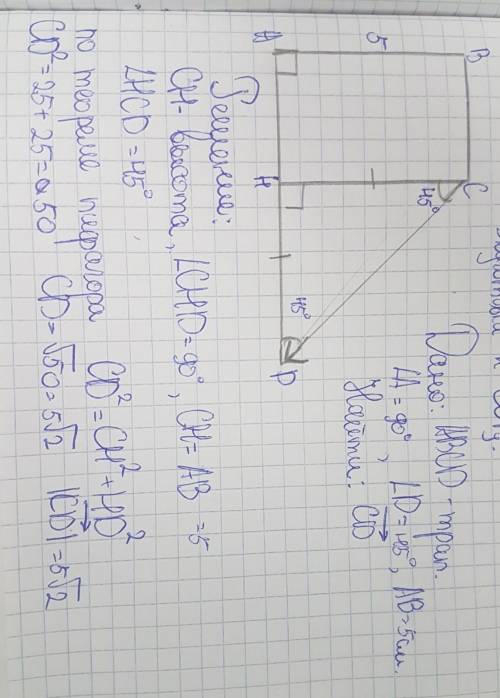 Дано: ABCD - трап.
∠A = 90°, ∠D = 45°, AB = 5 см.
Найти: C͞D→
B
C
5
45°
A
H
45°
D
Решение:
CH - высота, ∠CHD = 90°, CH = AB = 5
∠HCD = 45°
по теореме пифагора CD² = CH² + HD²
CD² = 25 + 25 = 50 CD = √50 = 5√2 |CD→| = 5√2